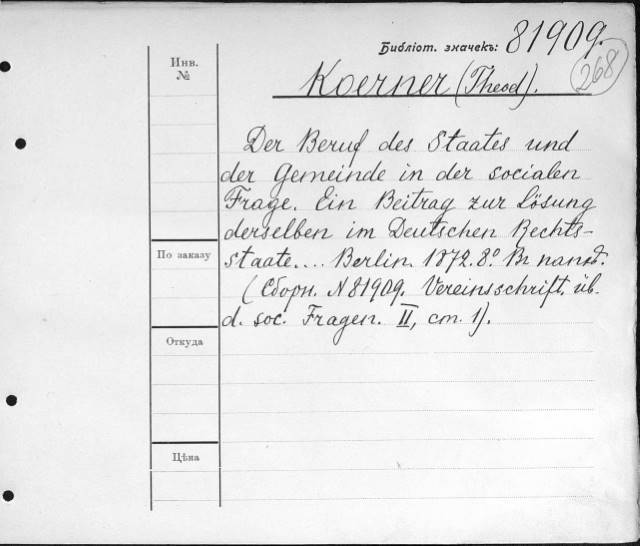 Библіот. значекъ: 81909.
268
Инв.
№
Koerner (Theod).
Der Beruf des Staates und
der Gemeinde in der socialen
Frage. Ein Beitrag zur Lösung
derselben im Deutschen Rechts-
staate.... Berlin. 1872. 8º. Въ папк.
(Сборн. № 81909. Vereinsschrift. üb.
d. soc. Fragen. II, ст. 1).
По заказу
Откуда
Цѣна